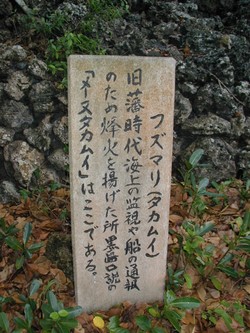 フズマリ(タカムイ)
旧藩時代海上の監視や船の通報
のため烽火を揚げた所黒島口説の
「メーヌタカムイ」はここである。